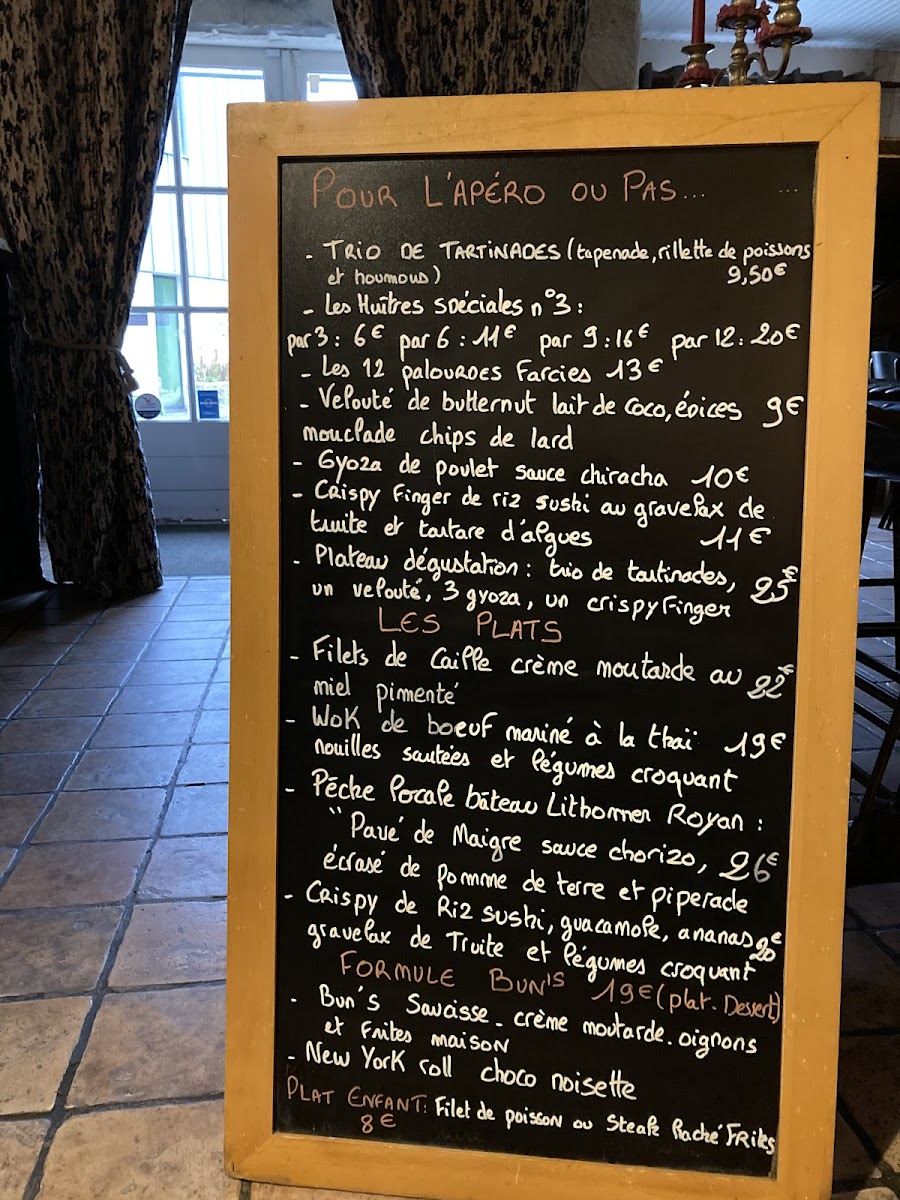 POUR L'APÉRO OU PAS... ...
- TRIO DE TARTINADES (tapenade, rillette de poissons
et houmous) 9,50€
- Les Huîtres spéciales n°3 :
par 3 : 6€ par 6 : 11€ par 9 : 16€ par 12 : 20€
- Les 12 palourdes Farcies 13€
- Velouté de butternut lait de coco, épices 9€
mouclade chips de lard
- Gyoza de poulet sauce chiracha 10€
- Crispy Finger de riz sushi au gravelax de
truite et tartare d'algues 11€
- Plateau dégustation : trio de tartinades, 25€
un velouté, 3 gyoza, un crispy Finger
LES PLATS
- Filets de Caille crème moutarde au 22€
miel pimenté
- Wok de boeuf mariné à la thaï 19€
nouilles sautées et légumes croquant
- Pêche locale bâteau Lithormer Royan :
" Pavé de Maigre sauce chorizo, 26€
écrasé de pomme de terre et piperade
- Crispy de Riz sushi, guacamole, ananas 20€
gravelax de Truite et légumes croquant
FORMULE BUN'S 19€ (plat. Dessert)
- Bun's Saucisse - crème moutarde. oignons
et Frites maison
- New York roll choco noisette
PLAT ENFANT : Filet de poisson ou Steak Haché Frites
8€